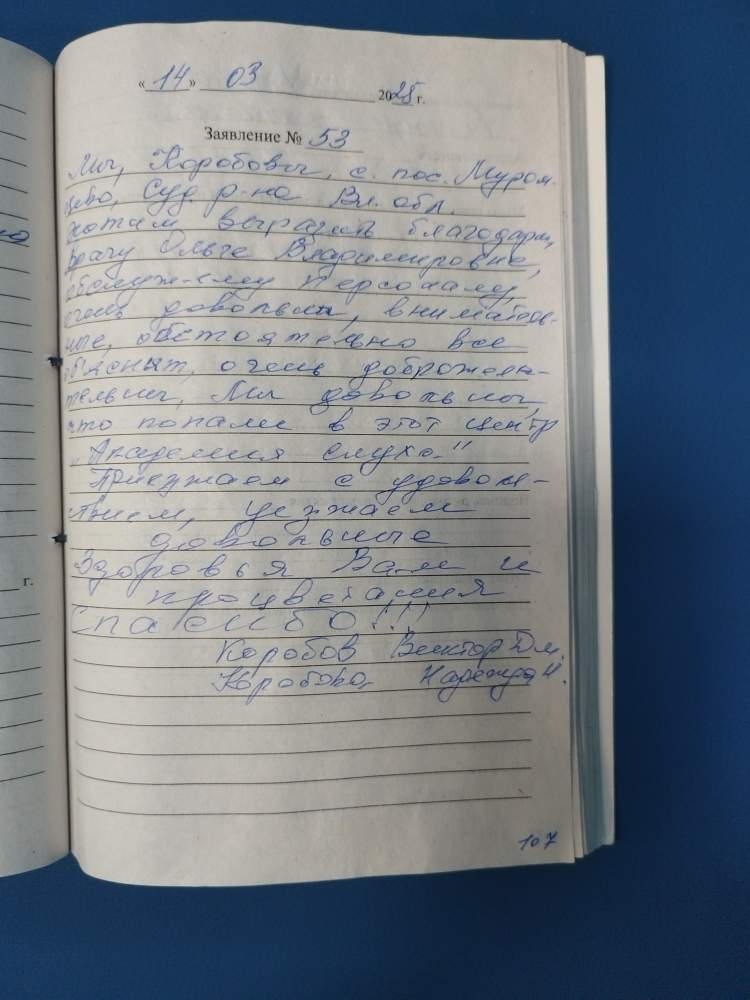 « 14 » 03 2025 г.
Заявление № 53
Мы, Коробовы, с. пос. Муром-
цево, Суд. р-на Вл. обл.
хотим выразить благодарн,
врачу Ольге Владимировне,
обслуж-ему персоналу,
очень довольны, вниматель-
ные, обстоятельно все
объяснят, очень доброжела-
тельны, Мы довольны,
что попали в этот центр
„Академия слуха."
Приезжаем с удоволь-
ствием, уезжаем
довольные
Здоровья Вам и
процветания
Спасибо!!!
Коробов Виктор Дм.
Коробова Надежда Н.
г.
107